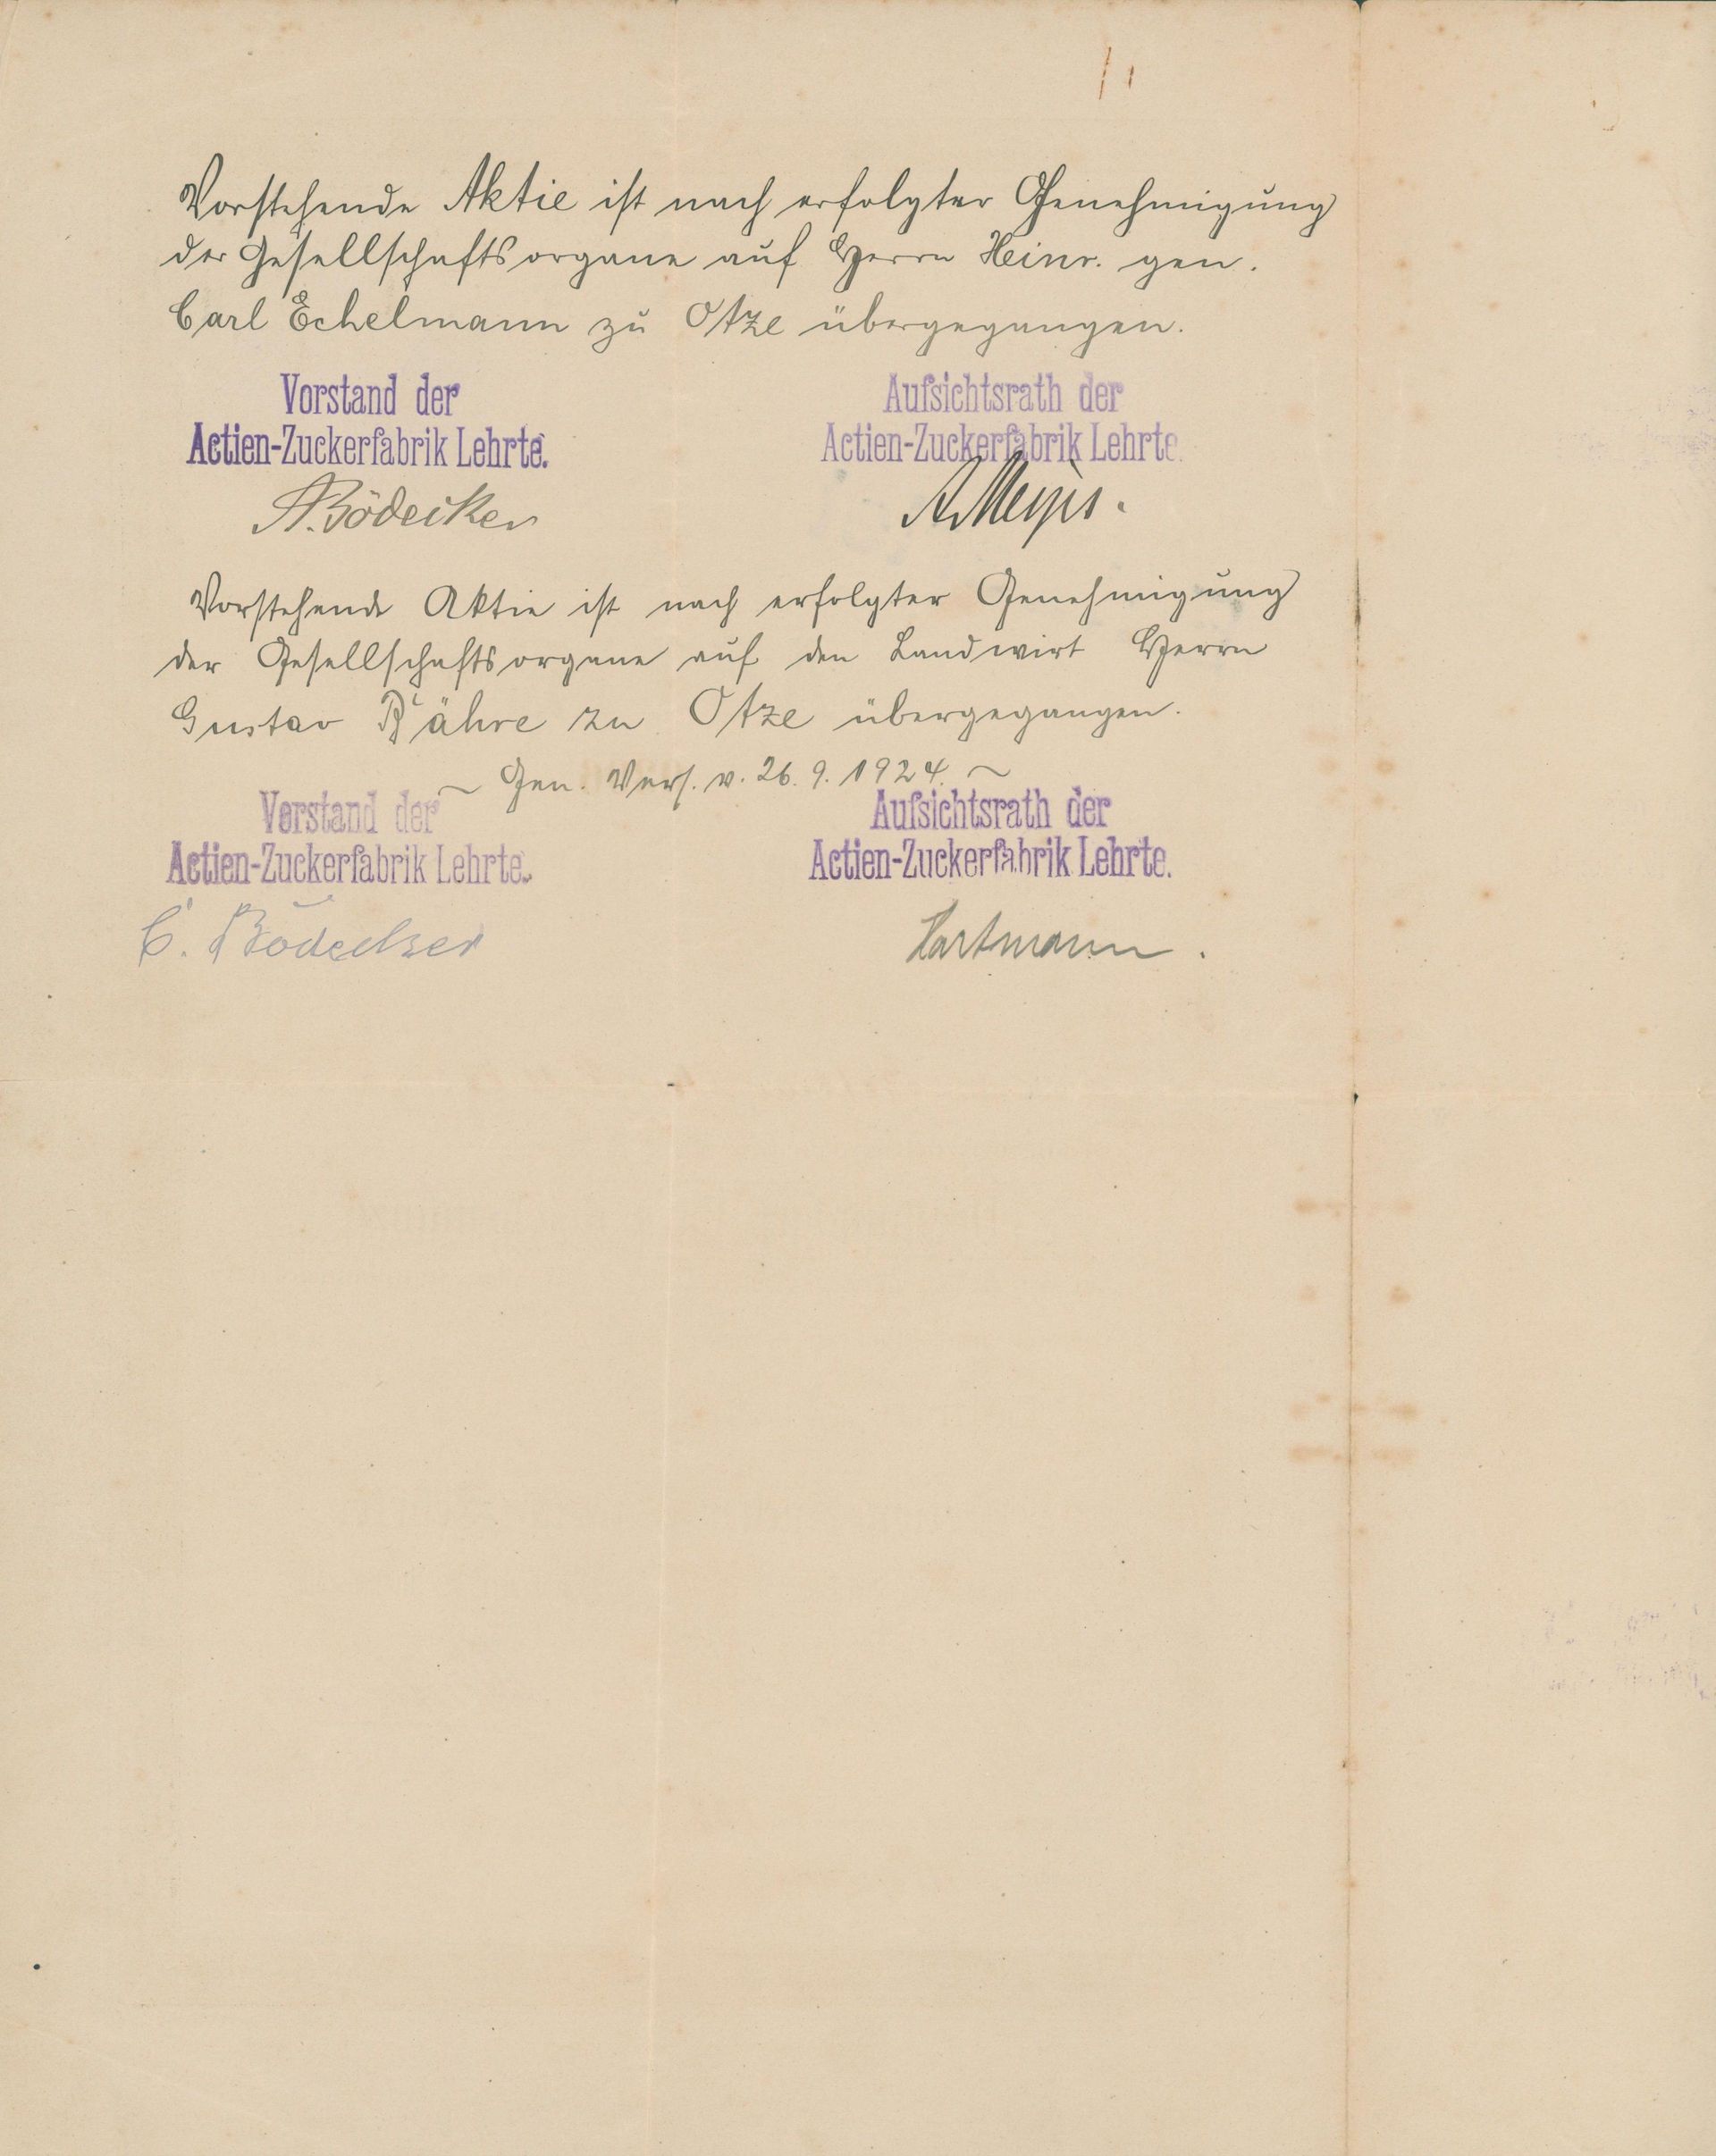 Vorstehende Aktie ist nach erfolgter Genehmigung
der Gesellschaftsorgane auf Herrn Heinr. gen.
Carl Echelmann zu Otze übergegangen.
Vorstand der
Actien-Zuckerfabrik Lehrte.
Aufsichtsrath der
Actien-Zuckerfabrik Lehrte.
A. Bödecker
Vorstehende Aktie ist nach erfolgter Genehmigung
der Gesellschaftsorgane auf den Landwirt Herrn
Gustav Bähre zu Otze übergegangen.
~ Gen. Vers. v. 26. 9. 1924. ~
Vorstand der
Actien-Zuckerfabrik Lehrte.
Aufsichtsrath der
Actien-Zuckerfabrik Lehrte.
C. Bödecker
Hartmann.